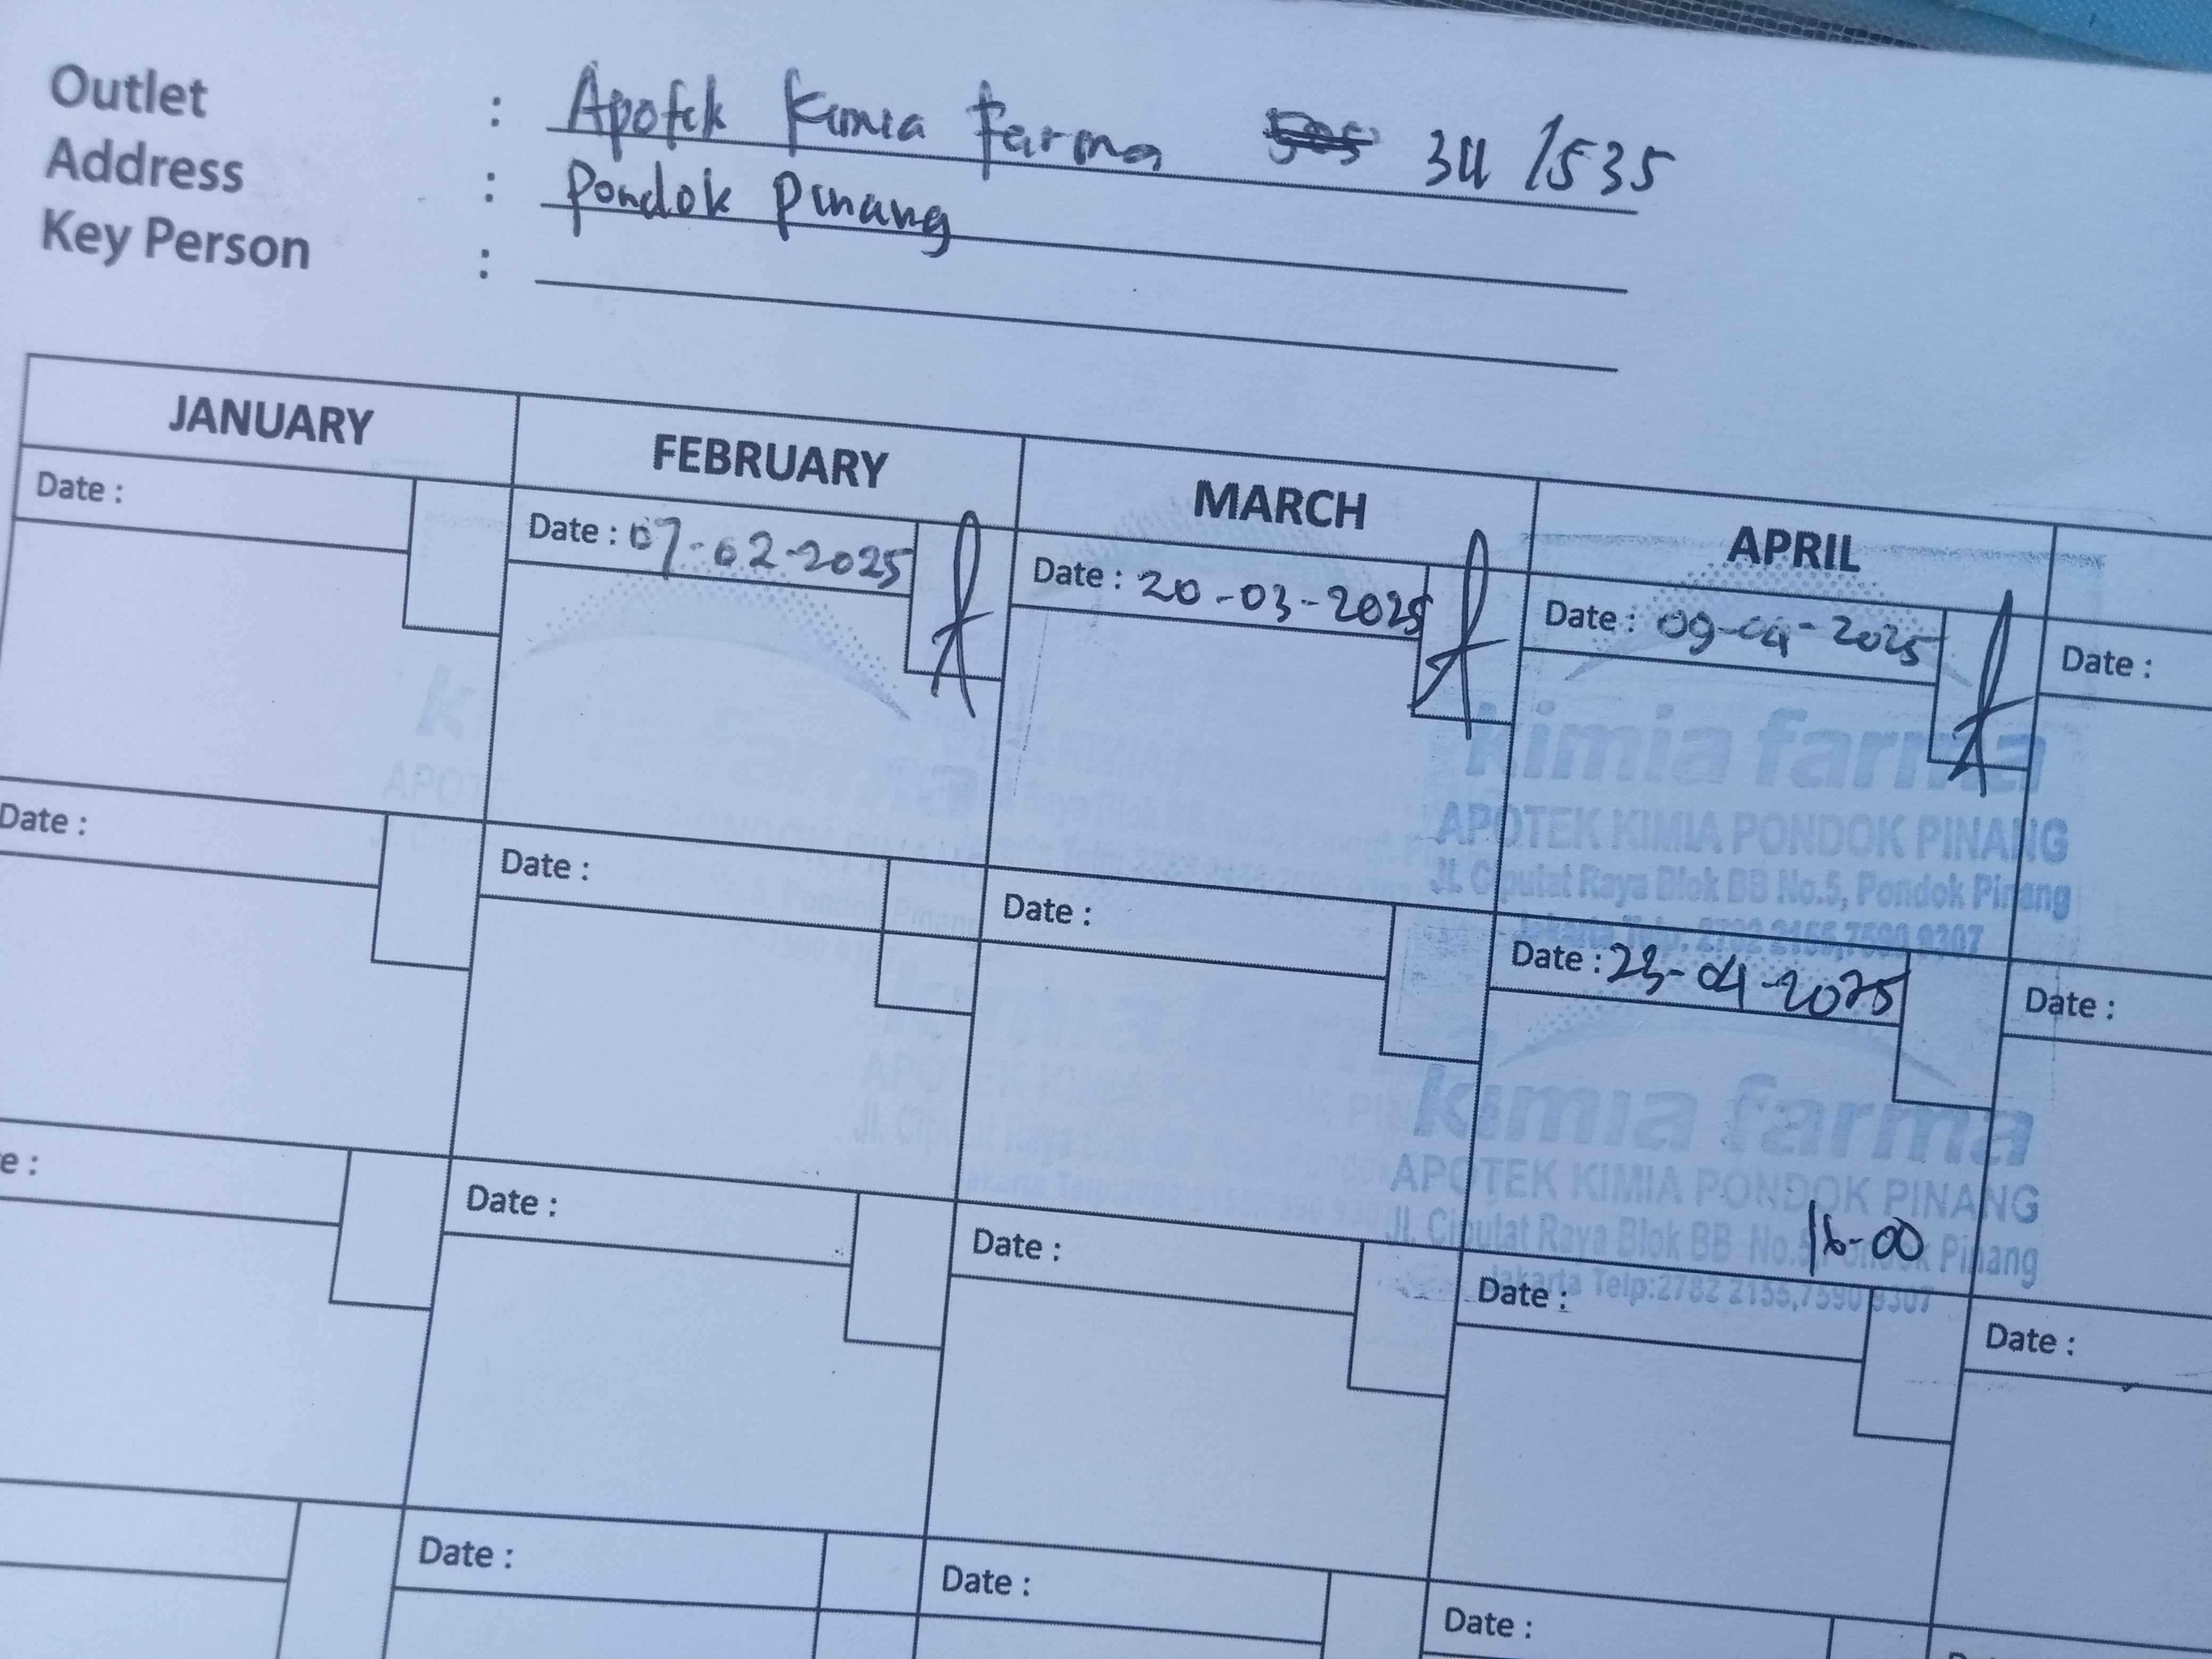 Outlet : Apotek Kimia Farma 34 /535
Address : Pondok Pinang
Key Person :
JANUARY
FEBRUARY
MARCH
APRIL
Date :
Date : 07-02-2025
Date : 20-03-2025
Date : 09-04-2025
Date :
kimia farma
APOTEK KIMIA PONDOK PINANG
Jl. Ciputat Raya Blok BB No.5, Pondok Pinang
Jakarta Telp. 2782 2155,7590 9307
Date :
Date :
Date :
Date : 23-04-2025
Date :
kimia farma
APOTEK KIMIA PONDOK PINANG
Jl. Ciputat Raya Blok BB No.5, Pondok Pinang
Jakarta Telp:2782 2155,7590 9307
16-00
e :
Date :
Date :
Date :
Date :
Date :
Date :
Date :